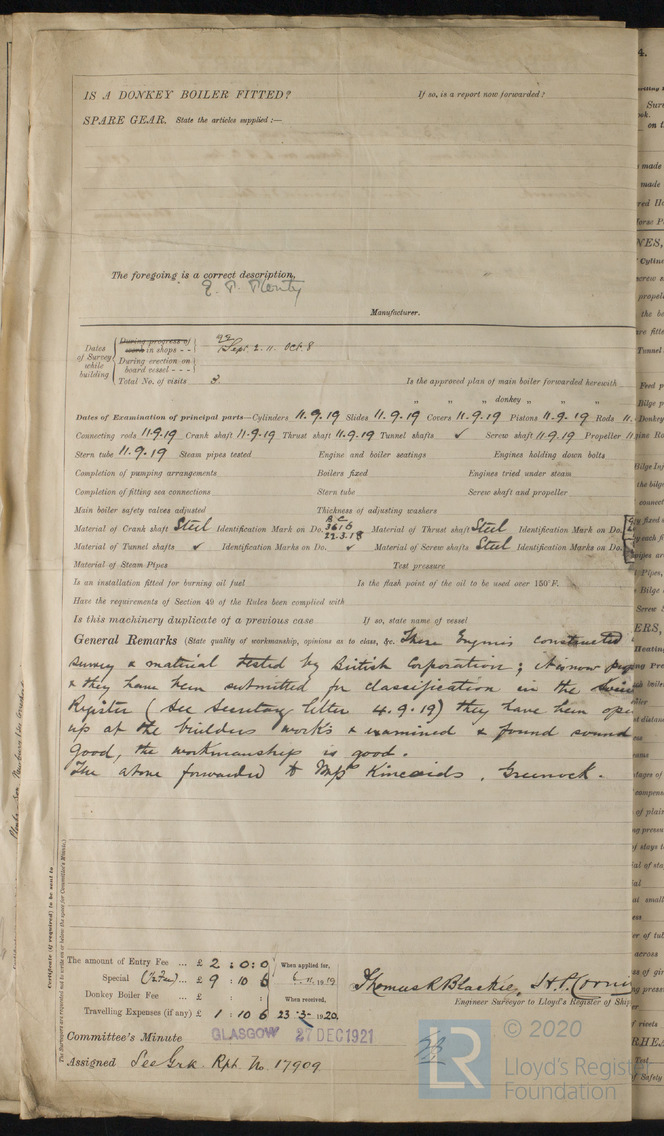 IS A DONKEY BOILER FITTED? If so, is a report now forwarded?
SPARE GEAR. State the articles supplied:—
The foregoing is a correct description,
Manufacturer.
Dates of Survey while building
During progress of work in shops - -
During erection on board vessel - - -
Total No. of visits 3
1919 Sept. 2. 11. Oct. 8
Is the approved plan of main boiler forwarded herewith
" " donkey " " "
Dates of Examination of principal parts—Cylinders 11.9.19 Slides 11.9.19 Covers 11.9.19 Pistons 11.9.19 Rods 11.
Connecting rods 11.9.19 Crank shaft 11.9.19 Thrust shaft 11.9.19 Tunnel shafts ✓ Screw shaft 11.9.19 Propeller 11
Stern tube 11.9.19 Steam pipes tested Engine and boiler seatings Engines holding down bolts
Completion of pumping arrangements Boilers fixed Engines tried under steam
Completion of fitting sea connections Stern tube Screw shaft and propeller
Main boiler safety valves adjusted Thickness of adjusting washers
Material of Crank shaft Steel Identification Mark on Do. B C 3616 22.3.18 Material of Thrust shaft Steel Identification Mark on Do.
Material of Tunnel shafts ✓ Identification Marks on Do. ✓ Material of Screw shafts Steel Identification Marks on Do.
Material of Steam Pipes Test pressure
Is an installation fitted for burning oil fuel Is the flash point of the oil to be used over 150°F.
Have the requirements of Section 49 of the Rules been complied with
Is this machinery duplicate of a previous case If so, state name of vessel
General Remarks (State quality of workmanship, opinions as to class, &c. These Engines constructed
survey & material tested by British Corporation; & now
& they have been submitted for classification in the
Register (See Secretary letter 4.9.19) they have been ope
up at the builders works & examined & found sound
good, the workmanship is good.
The above forwarded to Messrs Kincaids, Greenock.
Certificate (if required) to be sent to
The Surveyors are requested not to write on or below the space for Committee's Minute.
The amount of Entry Fee ... £ 2 : 0 : 0 When applied for,
Special (½ Fee) ... £ 9 : 10 6 6.11.1919
Donkey Boiler Fee ... £ : : When received,
Travelling Expenses (if any) £ 1 : 10 6 23.3.1920.
Thomas R Blackie,
Engineer Surveyor to Lloyd's Register of Ship
Committee's Minute GLASGOW 27 DEC 1921
Assigned See Grk. Rpt. No. 17909
LR © 2020
Lloyd's Register
Foundation